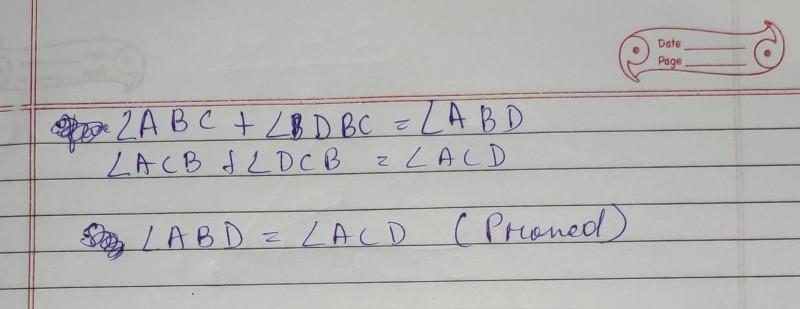 Date
Page
∠ABC + ∠DBC = ∠ABD
∠ACB + ∠DCB = ∠ACD
∠ABD = ∠ACD (Proned)